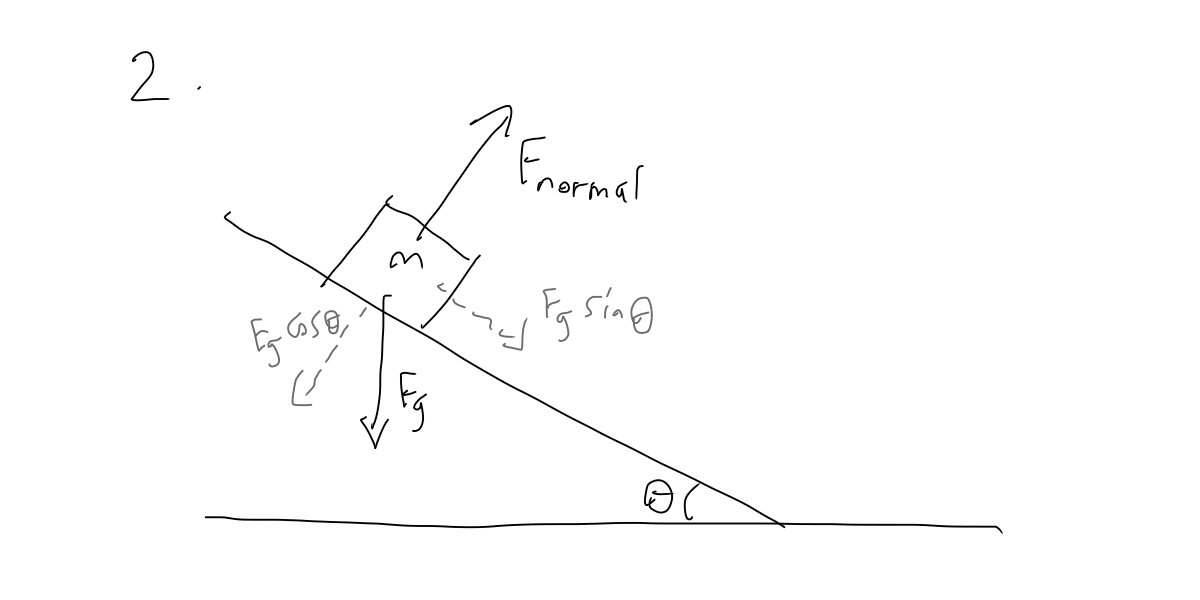 2.
F normal
m
Fg cosθ
Fg sinθ
Fg
θ